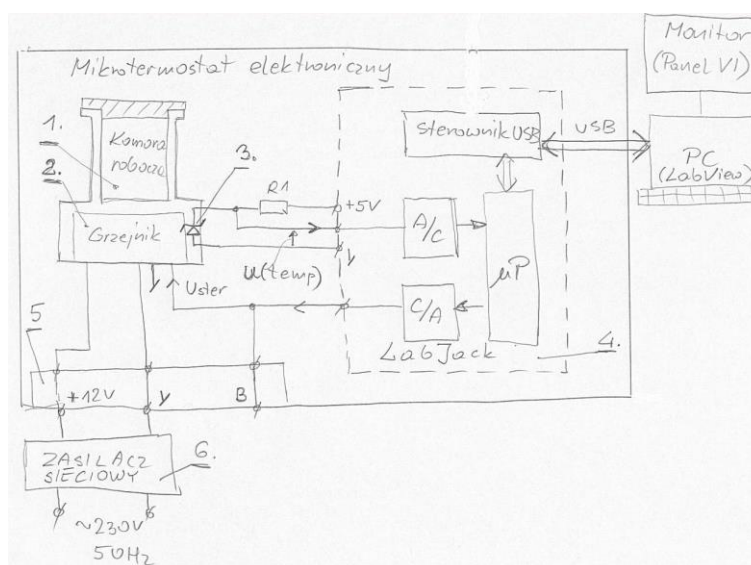 Mikrotermostat elektroniczny
Monitor
(Panel VI)
1.
Komora
robocza
2.
Grzejnik
3.
R1
+5V
U(temp)
Uster
Sterownik USB
USB
PC
(LabView)
A/C
μP
C/A
LabJack
4.
5
+12V
B
ZASILACZ
SIECIOWY
6.
~230V
50Hz